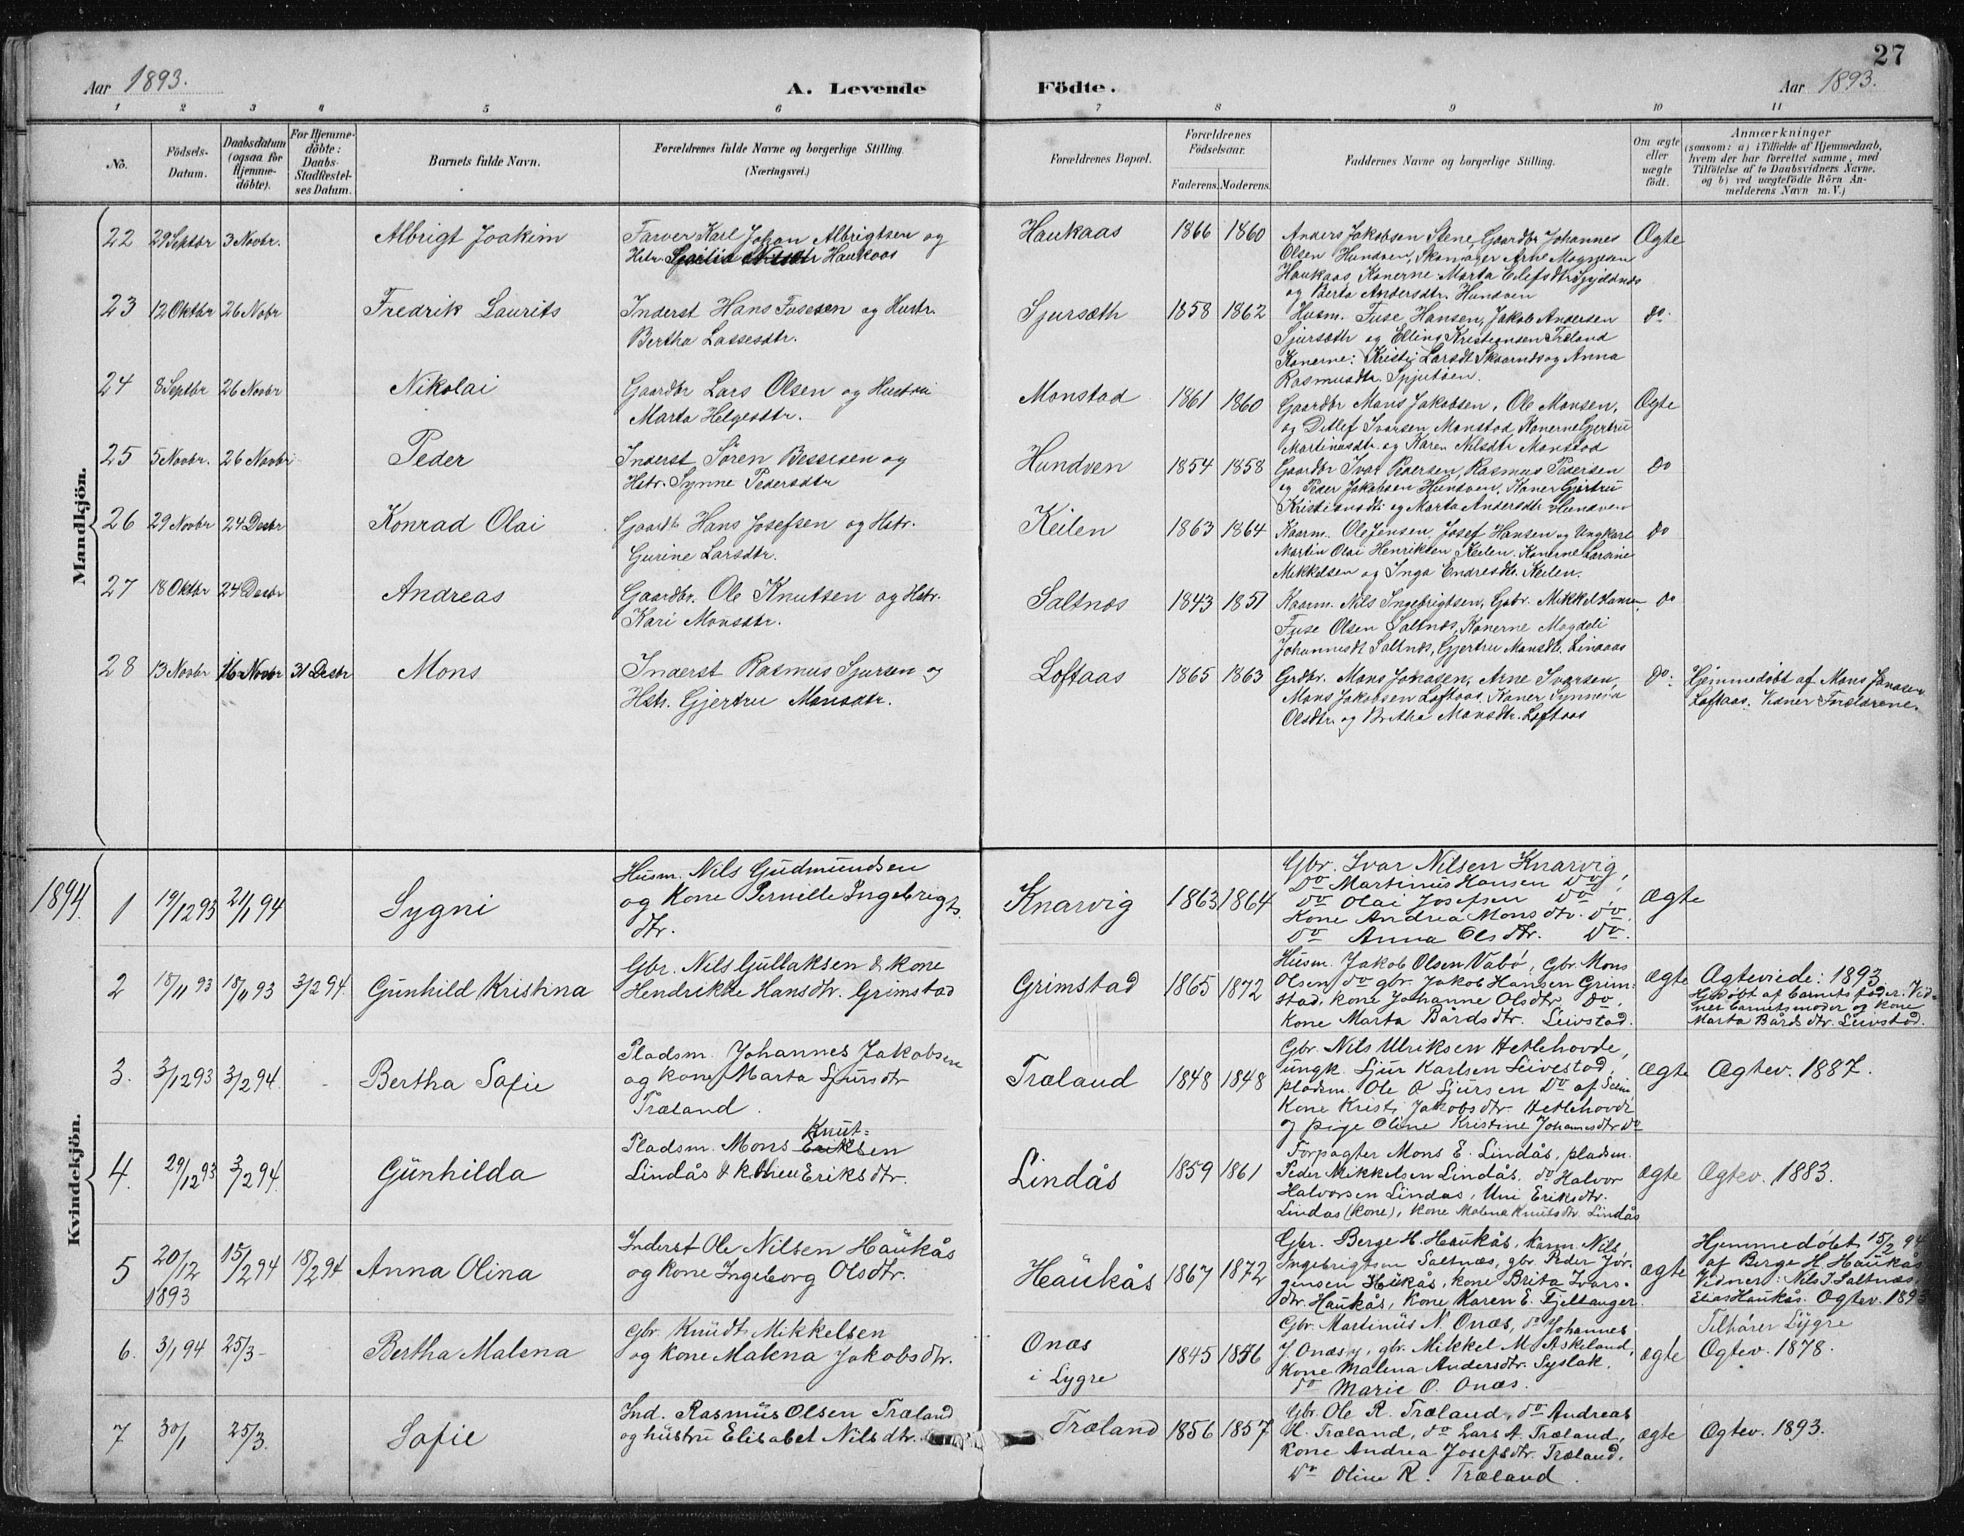 27
Aar 1893.
A. Levende Födte.
Aar 1893.
1 2 3 4 5 6 7 8 9 10 11
No.
Födsels-
Datum.
Daabsdatum
(ogsaa for
Hjemme-
döbte).
For Hjemme-
döbte:
Daabs-
Stadfæstel-
ses Datum.
Barnets fulde Navn.
Forældrenes fulde Navne og borgerlige Stilling.
(Næringsvei.)
Forældrenes Bopæl.
Forældrenes
Födselsaar.
Faderens. Moderens.
Faddernes Navne og borgerlige Stilling.
Om ægte
eller
uægte
födt.
Anmærkninger
(saasom: a) i Tilfælde af Hjemmedaab,
hvem der har forrettet samme, med
Tilföielse af to Daabsvidners Navne.
og b) ved uægtefödte Börn An-
melderens Navn m. V.)
Mandkjön.
22 29 Septbr 3 Novbr. Albrigt Joakim
Farver Karl Johan Albrigtsen og
Hstr. Haukaas
Haukaas 1866 1860
Anders Jakobsen Stene, Gaardbr Johannes
Olsen Hundven, Skomager Arne Magnesen
Haukaas, Konerne Marta Eilefsdtr
og Berta Andersdtr. Hundven
Ægte
23 12 Oktbr 26 Nobr Fredrik Laurits
Inderst Hans Fusesen og Hustr.
Bertha Lassesdtr.
Sjursæth 1858 1862
Husm. Fuse Hansen, Jakob Andersen
Sjursæth og Elling Kristiansen Træland
Konerne: Kristi Larsdt og Anna
Rasmusdtr. Spjutöen.
do.
24 8 Septbr 26 Novbr Nikolai
Gaardbr Lars Olsen og Hustru
Marta Helgesdtr.
Monstad 1861 1860
Gaardbr Mons Jakobsen, Ole Monsen,
og Ditlef Ivarsen Monstad Konerne Gjertru
Martinusdtr og Karen Nilsdtr Monstad
Ægte
25 5 Novbr. 26 Novbr Peder
Inderst Sören Bessesen og
Hstr. Synne Pedersdtr
Hundven 1854 1858
Gaardbr Ivar Pedersen, Rasmus Pedersen
og Peder Jakobsen Hundven, Koner Gjertru
Kristiansdt og Marta Andersdtr Hundven
do
26 29 Novbr 24 Desbr Konrad Olai
Gaardbr Hans Josefsen og Hstr.
Gurine Larsdtr.
Keilen 1863 1864
Kaarm. Ole Jensen, Josef Hansen og Ungkarl
Martin Olai Henriksen Keilen. Konerne Larsine
Mikkelsen og Inga Endresdtr Keilen.
do
27 18 Oktbr 24 Desbr Andreas
Gaardbr. Ole Knutsen og Hstr.
Kari Monsdtr.
Saltnæs 1843 1851
Kaarm. Nils Ingebrigtsen, Gbr. Mikkel Hansen,
Fuse Olsen Saltnæs, Konerne Magdeli
Johannesdt Saltnæs, Gjertru Monsdtr. Lindaas
do
28 13 Novbr 16 Novbr 31 Desbr Mons
Inderst Rasmus Sjursen og
Hstr. Gjertru Monsdtr.
Loftaas 1865 1863
Grdbr. Mons Jonasen, Arne Ivarsen,
Mons Jakobsen Loftaas, Koner Synneva
Olsdtr. og Britha Monsdtr. Loftaas
do.
Hjemmedöbt af Mons Jonasen
Loftaas. Vidner Forældrene.
1894.
Kvindekjön.
1 19/12 93 21/1 94 Sygni
Husm. Nils Gudmundsen
og kone Pernille Ingebrigts
dtr.
Knarvig 1863 1864
Gbr. Ivar Nilsen Knarvig,
do Martinus Hansen do,
do Olai Josefsen do,
Kone Andrea Monsdtr. do.
do Anna Olsdtr. do.
Ægte
2 18/11 93 18/11 93 3/2 94. Gunhild Kristina
Gbr. Nils Gullaksen & kone
Hendrikke Hansdtr. Grimstad
Grimstad 1865 1872
Husm. Jakob Olsen Vabø, Gbr. Mons
Olsen do gbr. Jakob Hansen Grim-
stad, kone Johanne Olsdtr do,
Kone Marta Bårdsdtr. Leivstad.
Ægte
Ægteviede: 1893
Hjdöbt af barnets fader. Vid-
ner barnets moder og kone
Marta Bårdsdtr. Leivstad.
3. 3/12 93 3/2 94. Bertha Sofie
Pladsm. Johannes Jakobsen
og kone Marta Sjursdtr
Træland.
Træland 1848 1848
Gbr. Nils Ulriksen Hetlehovde,
ungk. Sjur Karlsen Leivestad,
pladsm. Ole O Sjursen do af Seim
Kone Kristi Jakobsdtr. Hetlehovde
og pige Oline Kristine Johannesdtr do
Ægte
Ægtev. 1887.
4. 29/12 93 3/2 94. Gunhilda
Knut-
Pladsm. Mons Eriksen
Lindås & k. Uni Eriksdtr.
Lindås 1859 1861
Forpagter Mons E. Lindås, pladsm.
Peder Mikkelsen Lindås. do Halvor
Halvorsen Lindås, Uni Eriksdtr.
Lindås (kone), kone Malena Knutsdtr. Lindås
ægte
Ægtev. 1883.
5 20/12 1893 15/2 94 18/2 94 Anna Olina
Inderst Ole Nilsen Haukås
og kone Ingeborg Olsdtr.
Haukås 1867 1872
Gbr. Berge H. Haukås, Karm. Nils
Ingebrigtsen Saltnæs, gbr. Peder Jör-
gensen Haukås, kone Brita Ivars-
dtr. Haukås, kone Karen E. Fjellanger.
ægte
Hjemmedöbt 15/2 94
af Berge H. Haukås
Vidner: Nils I. Saltnæs,
Elias Haukås. Ægtev. 1893
6. 3/1 94 25/3- Bertha Malena
Gbr. Knudt Mikkelsen
og kone Malena Jakobsdtr.
Onæs
i Lygre
1845 1856
Gbr. Martinus N. Onæs, do Johannes
J Onæs, gbr. Mikkel M. Askeland,
Kone Malena Andersdtr. Syslak.
do Marie O. Onæs.
ægte
Tilhører Lygre
Ægtev. 1878.
7 30/1 25/3. Sofie
Ind. Rasmus Olsen Træland
og hustru Elisabet Nilsdtr.
Træland 1856 1857
Gbr. Ole R. Træland, do Andreas
H. Træland, do Lars A. Træland,
Kone Andrea Josefsdtr. Træland.
do Oline R. Træland.
ægte
Ægtev. 1893.